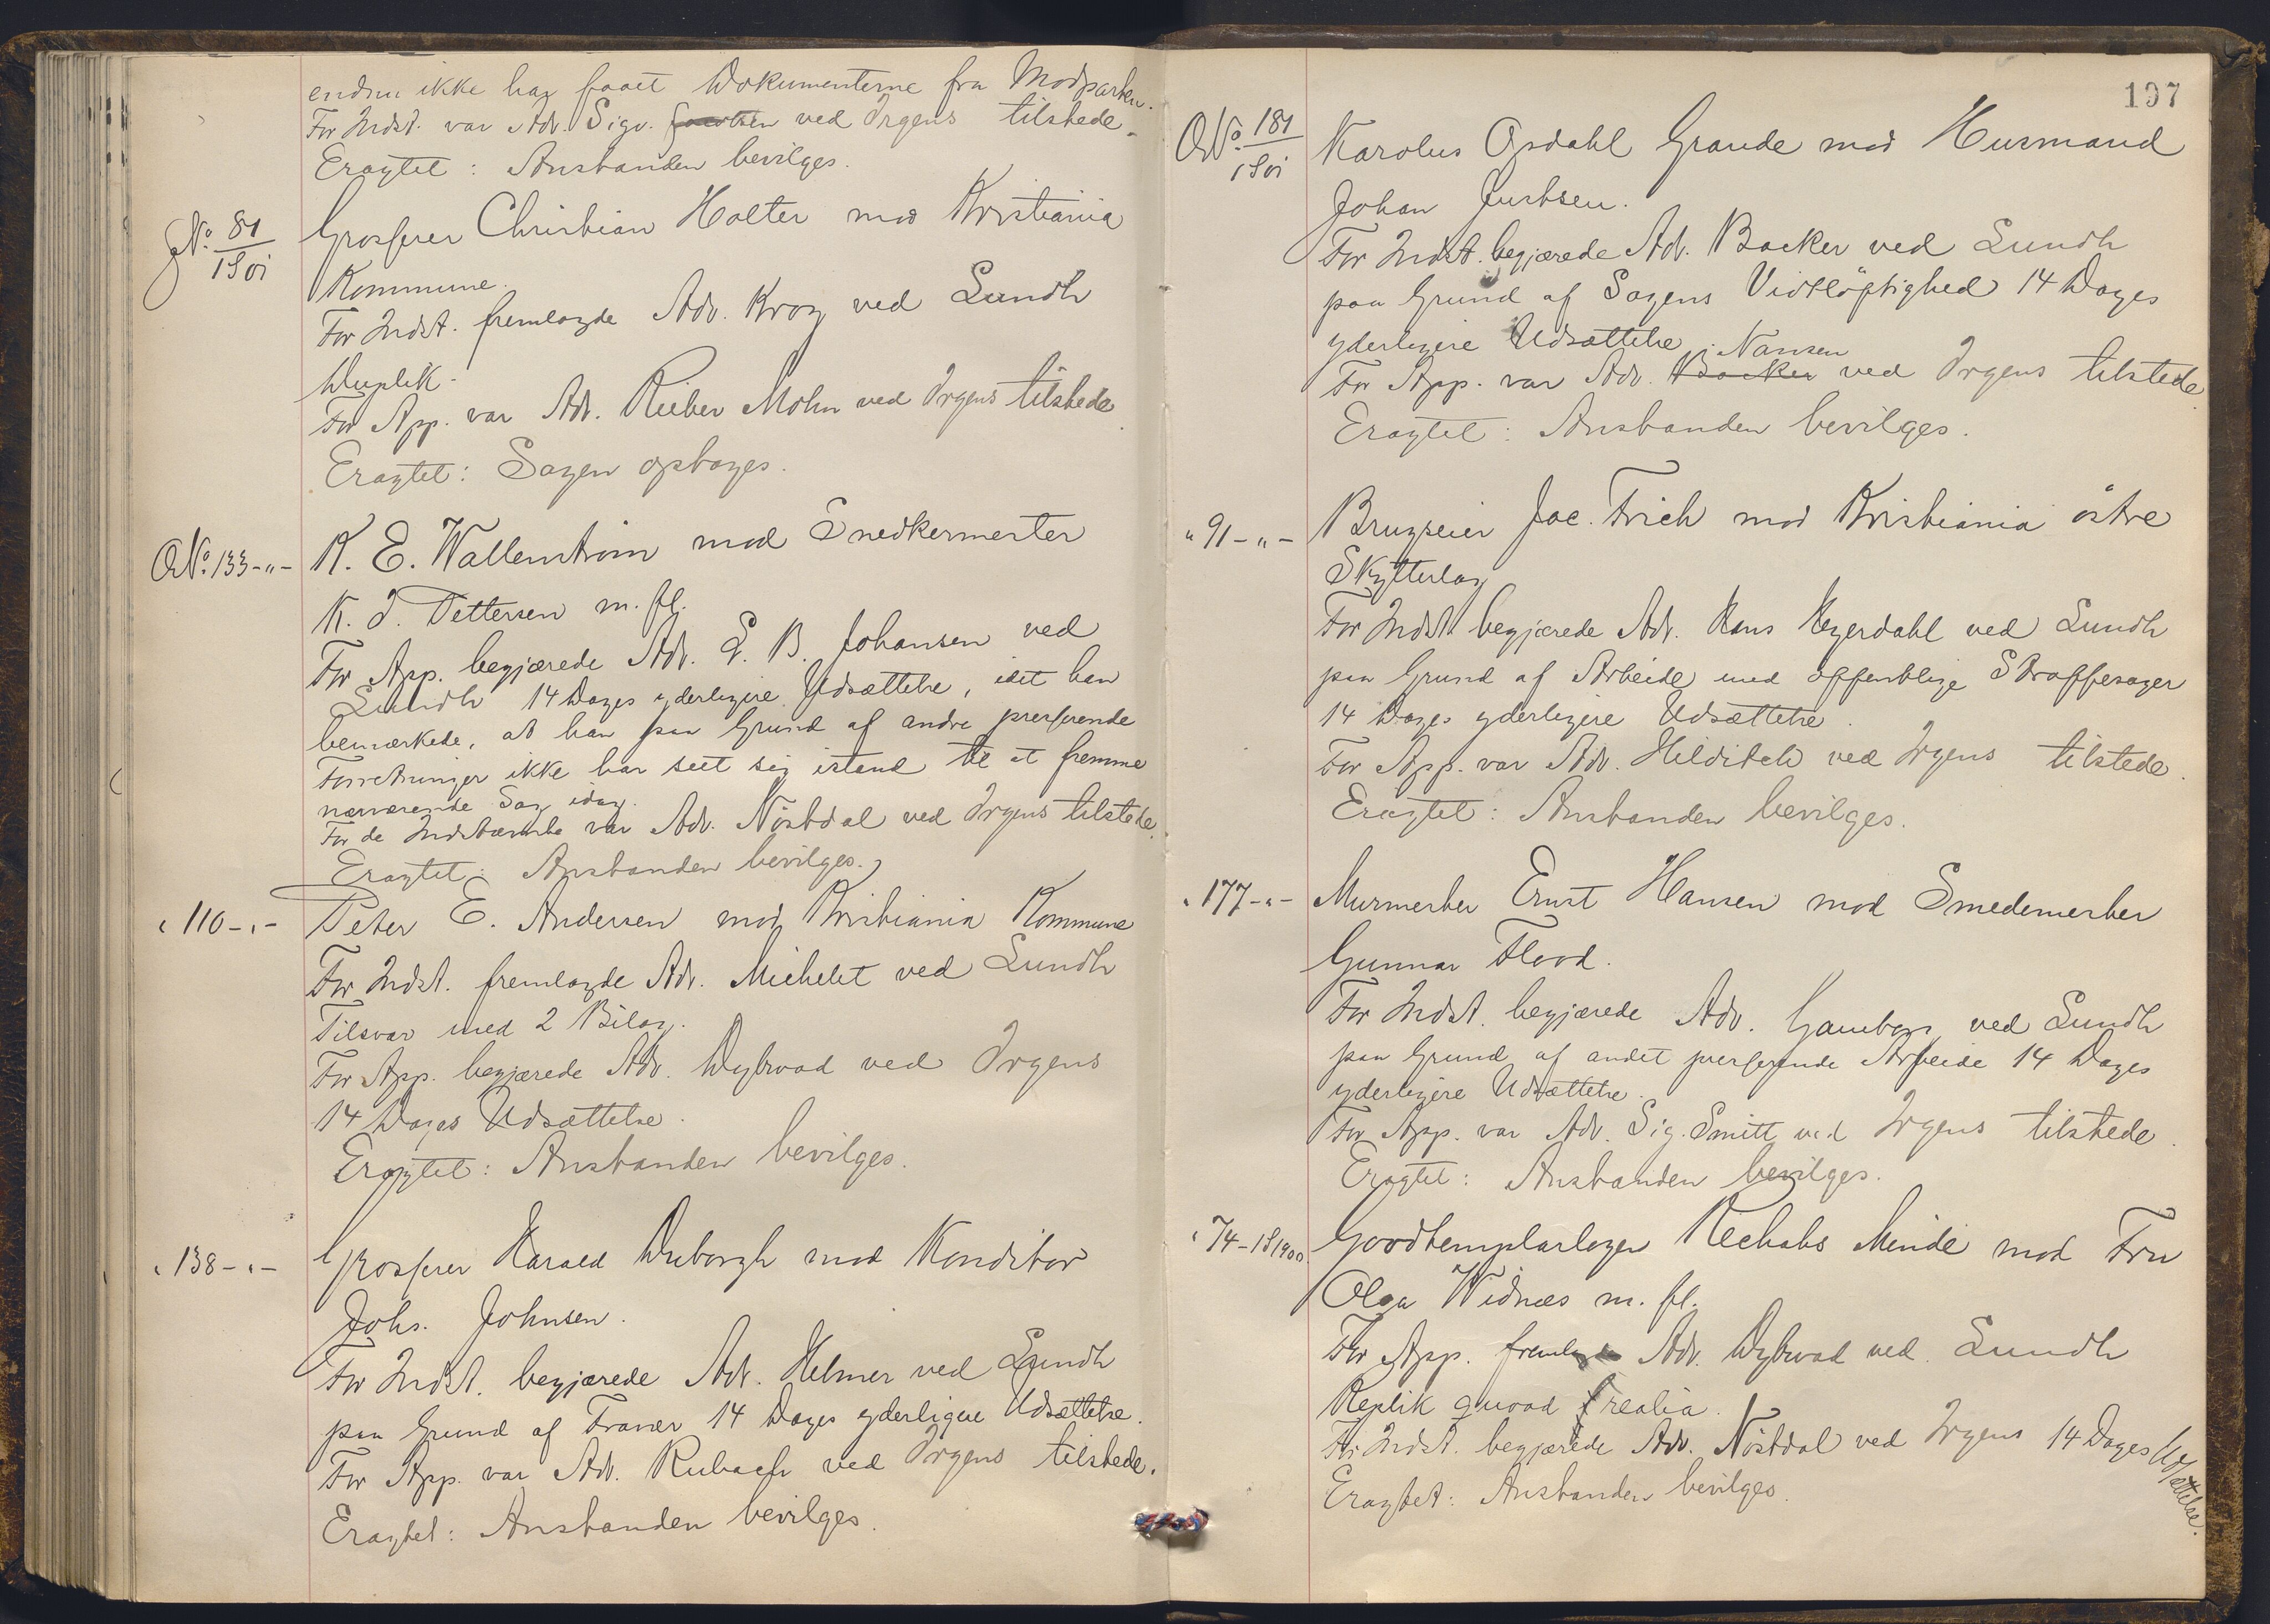 endnu ikke har faaet Dokumenterne fra Modparten.
For Indst. var Adv. Sigv. ved Irgens tilstede.
Eragtet: Anstanden bevilges.
No. 81/1901
Grosserer Christian Holter mod Kristiania
Kommune.
For Indst. fremlagde Adv. Krog ved Lundh
Duplik.
For App. var Adv. Rieber Mohn ved Irgens tilstede.
Eragtet: Sagen optages.
ONo. 133-"-
K. E. Wallenström mod Snedkermester
K. J. Pettersen m. fl.
For App. begjærede Adv. L. B. Johansen ved
Lundh 14 Dages yderligere Udsættelse, idet han
bemærkede, at han paa Grund af andre preserende
Forretninger ikke har seet sig istand til at fremme
nærværende Sag idag.
For de Indstævnte var Adv. Nöstdal ved Irgens tilstede.
Eragtet: Anstanden bevilges.
" 110-"-
Peter E. Andersen mod Kristiania Kommune
For Indst. fremlagde Adv. Michelet ved Lundh
Tilsvar med 2 Bilag.
For App. begjærede Adv. Dybwad ved Irgens
14 Dages Udsættelse.
Eragtet: Anstanden bevilges.
" 138-"-
Grosserer Harald Duborgh mod Konditor
Johs. Johnsen.
For Indst. begjærede Adv. Helmer ved Lundh
paa Grund af Fravær 14 Dages yderligere Udsættelse.
For App. var Adv. Rubach ved Irgens tilstede.
Eragtet: Anstanden bevilges.
197
ONo. 181/1901
Karolus Opdahl Grande mod Husmand
Johan Justsen.
For Indst. begjærede Adv. Backer ved Lundh
paa Grund af Sagens Vidtlöftighed 14 Dages
yderligere Udsættelse.
Nansen
For App. var Adv. Backer ved Irgens tilstede
Eragtet: Anstanden bevilges.
" 91-"-
Brugseier Jac. Frich mod Kristiania östre
Skytterlag
For Indst. begjærede Adv. Hans Heyerdahl ved Lundh
paa Grund af Arbeide med offentlige Straffesager
14 Dages yderligere Udsættelse.
For App. var Adv. Hilditch ved Irgens tilstede.
Eragtet: Anstanden bevilges.
" 177-"-
Murmester Ernst Hansen mod Smedemester
Gunnar Flood.
For Indst. begjærede Adv. Gamborg ved Lundh
paa Grund af andet preserende Arbeide 14 Dages
yderligere Udsættelse.
For App. var Adv. Sig. Smitt ved Irgens tilstede.
Eragtet: Anstanden bevilges.
" 74-1900
Goodtemplarlogen Rechabs Minde mod Fru
Olga Widnæs m. fl.
For App. Adv. Dybwad ved Lundh
Replik quoad realia.
For Indst. begjærede Adv. Nöstdal ved Irgens 14 Dages Udsættelse.
Eragtet: Anstanden bevilges.